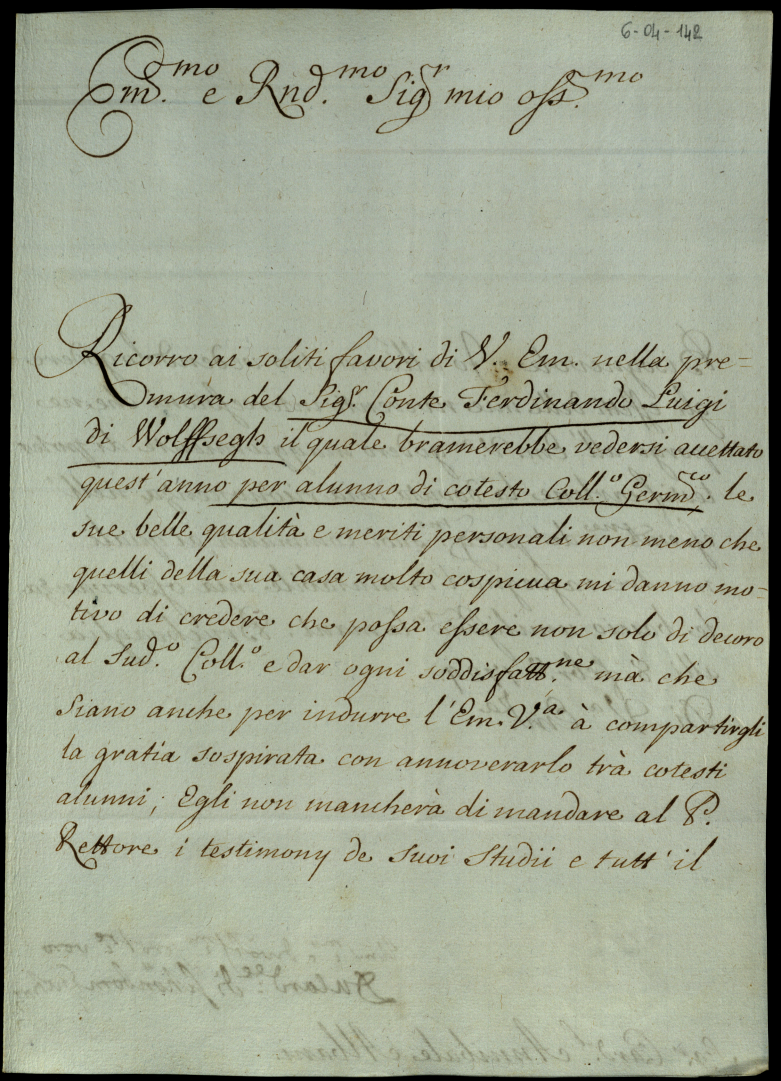 6-04-142
Em̃.mo e Rnd.mo Sigr mio oss.mo
Ricorro ai soliti favori di V. Em. nella pre=
mura del Sigr. Conte Ferdinando Luigi
di Wolffsegh il quale bramerebbe vedersi accettato
quest'anno per alunno di cotesto Coll.o Germ.co le
sue belle qualità e meriti personali non meno che
quelli della sua casa molto cospicua mi danno mo=
tivo di credere che possa essere non solo di decoro
al Sud.o Coll.o e dar ogni soddisfatt.ne mà che
siano anche per indurre l'Em. V.a à compartirgli
la gratia sospirata con annoverarlo trà cotesti
alunni; Egli non mancherà di mandare al P.
Rettore i testimony de suoi Studii e tutt'il